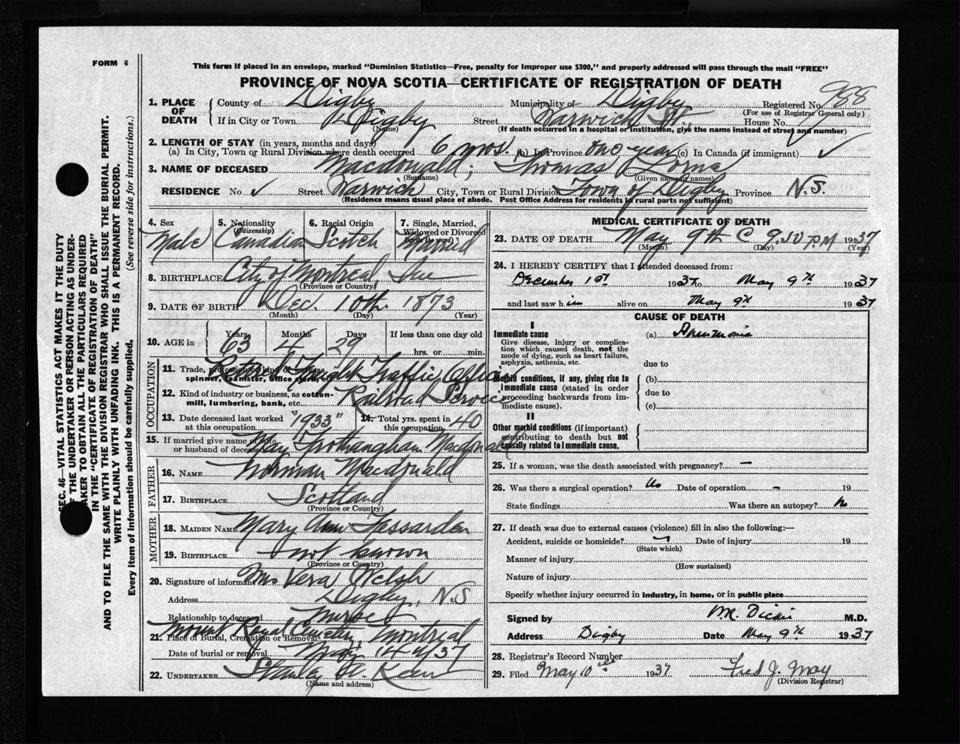 FORM 6
This form if placed in an envelope, marked "Dominion Statistics—Free, penalty for improper use $300," and properly addressed will pass through the mail "FREE"
PROVINCE OF NOVA SCOTIA—CERTIFICATE OF REGISTRATION OF DEATH
1. PLACE OF DEATH
County of Digby Municipality of Digby Registered No. 988
(For use of Registrar General only)
If in City or Town Digby Street Warwick St. House No.
(Name) (If death occurred in a hospital or institution, give the name instead of street and number)
2. LENGTH OF STAY (in years, months and days)
(a) In City, Town or Rural Division where death occurred 6 mos. (b) In Province One year (c) In Canada (if immigrant) ✓
3. NAME OF DECEASED Macdonald, Thomas Lorne
(Surname) (Given name or names)
RESIDENCE No. ✓ Street Warwick City, Town or Rural Division Town of Digby Province N.S.
(Residence means usual place of abode. Post Office Address for residents in rural parts not sufficient)
4. Sex Male
5. Nationality (Citizenship) Canadian
6. Racial Origin Scotch
7. Single, Married, Widowed or Divorced Married
8. BIRTHPLACE City of Montreal Que
(Province or Country)
9. DATE OF BIRTH Dec. 10th 1873
(Month) (Day) (Year)
10. AGE in Years 63 Months 4 Days 29 If less than one day old
hrs. or min.
OCCUPATION
11. Trade, Freight Traffic Officer
spinner, teamster, office clerk,
12. Kind of industry or business, as cotton-mill, lumbering, bank, etc. Railroad Service
13. Date deceased last worked at this occupation "1933"
14. Total yrs. spent in this occupation 40
15. If married give name of wife or husband of deceased May Frothingham Macdonald
FATHER
16. NAME Norman Macdonald
17. BIRTHPLACE Scotland
(Province or Country)
MOTHER
18. MAIDEN NAME Mary Ann
19. BIRTHPLACE not known
(Province or Country)
20. Signature of informant Mrs Vera Welsh
Address Digby, N.S
Relationship to deceased
21. Place of Burial, Cremation or Removal Mount Royal Montreal
Date of burial or removal May 14th/37
22. UNDERTAKER Stanley
(Name and address)
MEDICAL CERTIFICATE OF DEATH
23. DATE OF DEATH May 9th 9.50 P.M 1937
(Month) (Day) (Year)
24. I HEREBY CERTIFY that I attended deceased from:
December 1st 1937 to May 9th 1937
and last saw him alive on May 9th 1937
CAUSE OF DEATH
I
Immediate cause
Give disease, injury or complication which caused death, not the mode of dying, such as heart failure, asphyxia, asthenia, etc.
(a) Pneumonia
due to
Morbid conditions, if any, giving rise to immediate cause (stated in order proceeding backwards from immediate cause).
(b)
due to
(c)
II
Other morbid conditions (if important) contributing to death but not causally related to immediate cause.
25. If a woman, was the death associated with pregnancy? –
26. Was there a surgical operation? No Date of operation – 19
State findings Was there an autopsy? N
27. If death was due to external causes (violence) fill in also the following:—
Accident, suicide or homicide? Date of injury 19
(State which)
Manner of injury
(How sustained)
Nature of injury
Specify whether injury occurred in industry, in home, or in public place
Signed by M.D.
Address Digby Date May 9th 1937
28. Registrar's Record Number
29. Filed May 10th 1937 Fred J. May
(Division Registrar)
SEC. 46—VITAL STATISTICS ACT MAKES IT THE DUTY OF THE UNDERTAKER OR PERSON ACTING AS UNDERTAKER TO OBTAIN ALL THE PARTICULARS REQUIRED IN THE "CERTIFICATE OF REGISTRATION OF DEATH" AND TO FILE THE SAME WITH THE DIVISION REGISTRAR WHO SHALL ISSUE THE BURIAL PERMIT.
WRITE PLAINLY WITH UNFADING INK. THIS IS A PERMANENT RECORD.
Every item of information should be carefully supplied. (See reverse side for instructions.)